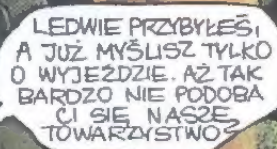 LEDWIE PRZYBYŁEŚ,
A JUŻ MYŚLISZ TYLKO
O WYJEŹDZIE. AŻ TAK
BARDZO NIE PODOBA
CI SIĘ NASZE
TOWARZYSTWO?